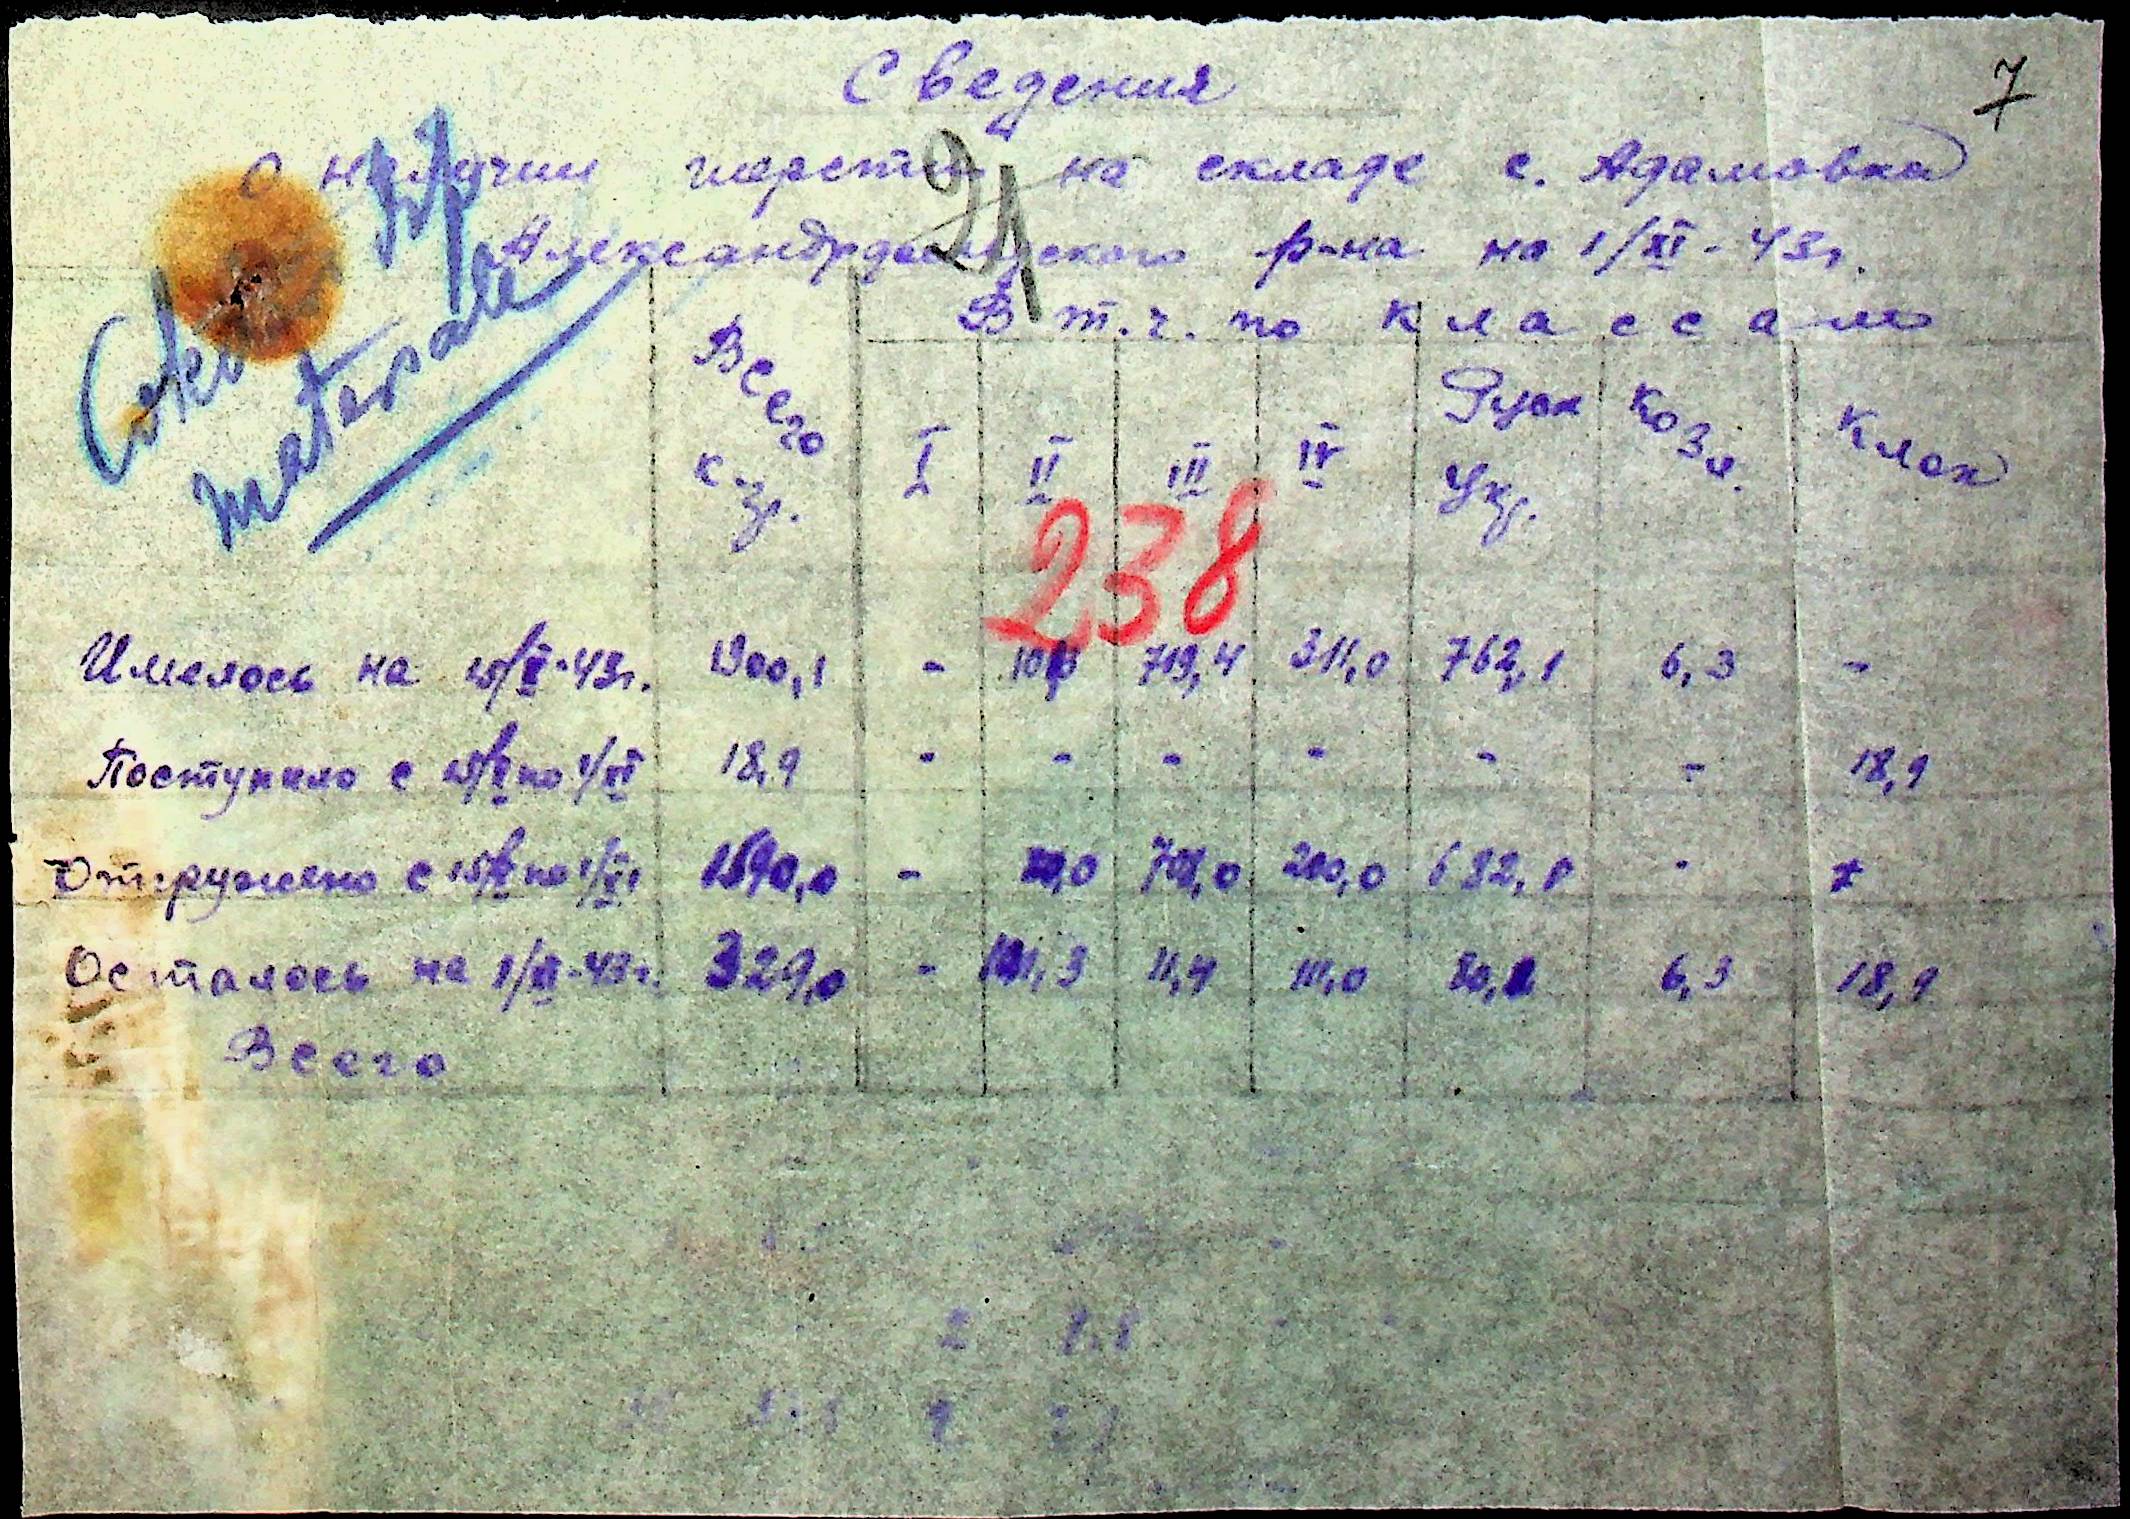 7
Сведения
о наличии шерсти на складе с. Адамовка
21
Александрдарского р-на на 1/XI-43г.
materiale
Всего к-гр. В т.ч. по классам
I II III IV Руск Укр. Козл. Клок
238
Имелось на 15/X-43г. 1900,1 - 719,4 311,0 762,1 6,3 -
Поступило с 15/X по 1/XI 18,9 - - - - - - 18,9
Отгружено с 15/X по 1/XI 1590,0 - 200,0 -
Осталось на 1/XI-43г. 329,0 - 11,4 111,0 6,3 18,9
Всего